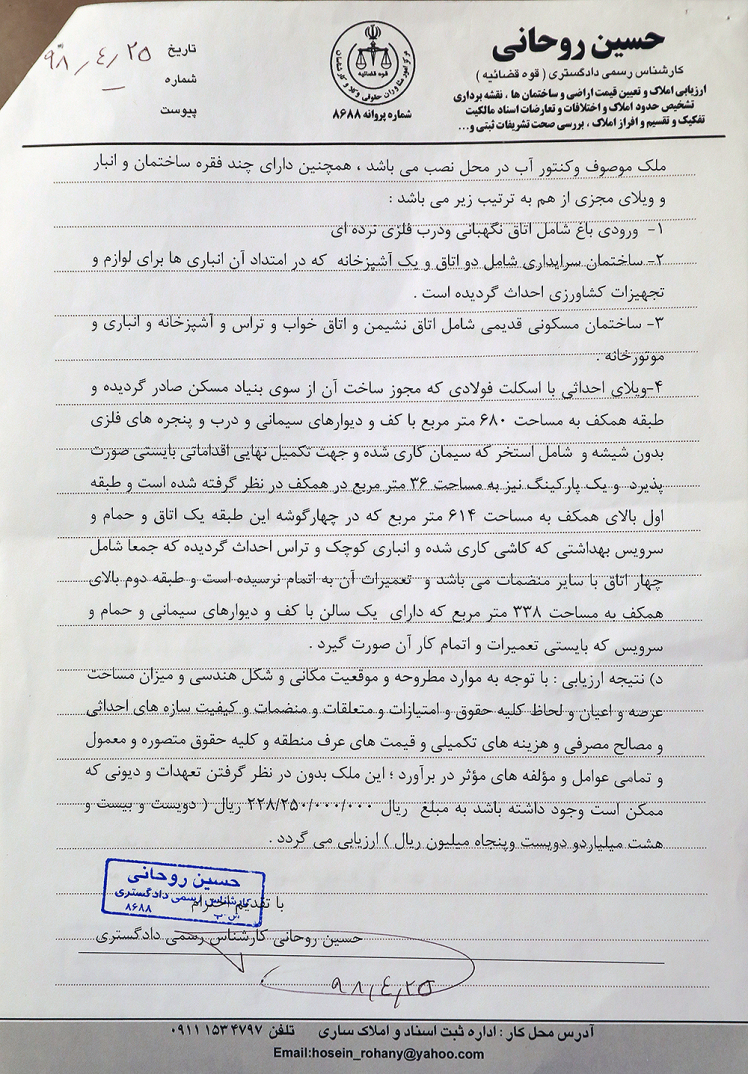 حسین روحانی
کارشناس رسمی دادگستری ( قوه قضائیه )
ارزیابی املاک و تعیین قیمت اراضی و ساختمان ها ، نقشه برداری
تشخیص حدود املاک و اختلافات و تعارضات اسناد مالکیت
تفکیک و تقسیم و افراز املاک ، بررسی صحت تشریفات ثبتی و...
قوه قضائیه
شماره پروانه ۸۶۸۸
تاریخ ۹۸/۴/۲۵
شماره —
پیوست
ملک موصوف وکنتور آب در محل نصب می باشد ، همچنین دارای چند فقره ساختمان و انبار
و ویلای مجزی از هم به ترتیب زیر می باشد :
۱- ورودی باغ شامل اتاق نگهبانی ودرب فلزی نرده ای
۲- ساختمان سرایداری شامل دو اتاق و یک آشپزخانه که در امتداد آن انباری ها برای لوازم و
تجهیزات کشاورزی احداث گردیده است .
۳- ساختمان مسکونی قدیمی شامل اتاق نشیمن و اتاق خواب و تراس و آشپزخانه و انباری و
موتورخانه .
۴-ویلای احداثی با اسکلت فولادی که مجوز ساخت آن از سوی بنیاد مسکن صادر گردیده و
طبقه همکف به مساحت ۶۸۰ متر مربع با کف و دیوارهای سیمانی و درب و پنجره های فلزی
بدون شیشه و شامل استخر که سیمان کاری شده و جهت تکمیل نهایی اقداماتی بایستی صورت
پذیرد و یک پارکینگ نیز به مساحت ۳۶ متر مربع در همکف در نظر گرفته شده است و طبقه
اول بالای همکف به مساحت ۶۱۴ متر مربع که در چهارگوشه این طبقه یک اتاق و حمام و
سرویس بهداشتی که کاشی کاری شده و انباری کوچک و تراس احداث گردیده که جمعا شامل
چهار اتاق با سایر منضمات می باشد و تعمیرات آن به اتمام نرسیده است و طبقه دوم بالای
همکف به مساحت ۳۳۸ متر مربع که دارای یک سالن با کف و دیوارهای سیمانی و حمام و
سرویس که بایستی تعمیرات و اتمام کار آن صورت گیرد .
د) نتیجه ارزیابی : با توجه به موارد مطروحه و موقعیت مکانی و شکل هندسی و میزان مساحت
عرصه و اعیان و لحاظ کلیه حقوق و امتیازات و متعلقات و منضمات و کیفیت سازه های احداثی
و مصالح مصرفی و هزینه های تکمیلی و قیمت های عرف منطقه و کلیه حقوق متصوره و معمول
و تمامی عوامل و مؤلفه های مؤثر در برآورد ؛ این ملک بدون در نظر گرفتن تعهدات و دیونی که
ممکن است وجود داشته باشد به مبلغ ریال ۲۲۸/۲۵۰/۰۰۰/۰۰۰ ریال ( دویست و بیست و
هشت میلیاردو دویست وپنجاه میلیون ریال ) ارزیابی می گردد .
با تقدیم احترام
حسین روحانی
کارشناس رسمی دادگستری
۸۶۸۸
حسین روحانی کارشناس رسمی دادگستری
۹۸/۴/۲۵
آدرس محل کار : اداره ثبت اسناد و املاک ساری تلفن ۰۹۱۱ ۱۵۳ ۴۷۹۷
Email:hosein_rohany@yahoo.com